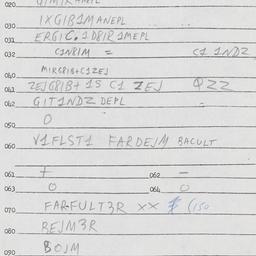 020.
030. IXGIB1MANEPL
031. ERGIC.1D8IR1MEPL
032 C1NRIM = C1 1NDZ
040. MIRGRIB+C1ZEJ
041 ZEJGRIB+ 1S C1 ZEJ QZZ
042 GIT1NDZ DEPL =
050. O
060. V1FLST1 FARDEJM BACULT
061 + 062 —
063 O 064 O
070 FARFULT3R XX $ (150
080 REJM3R
090 BOJM